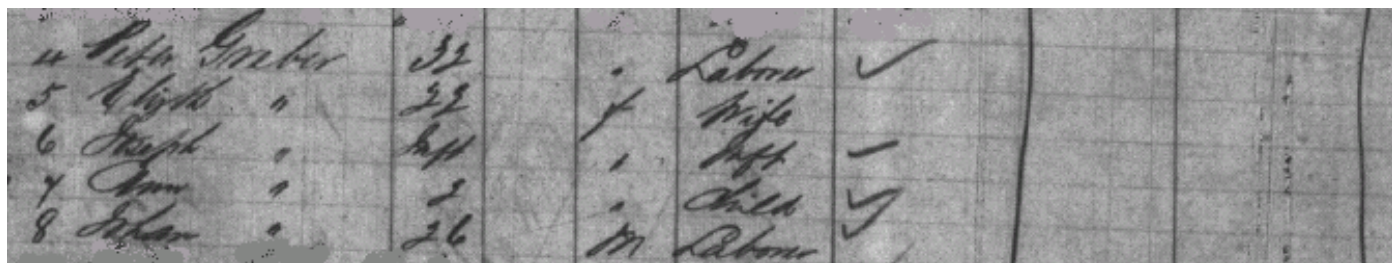 4 Peter Greber 32 " Laborer ✓
5 Elisth " 22 f Wife
6 Joseph " Inft " Inft —
7 Ann " 2 " Child ✓
8 Johan " 26 M Laborer ✓